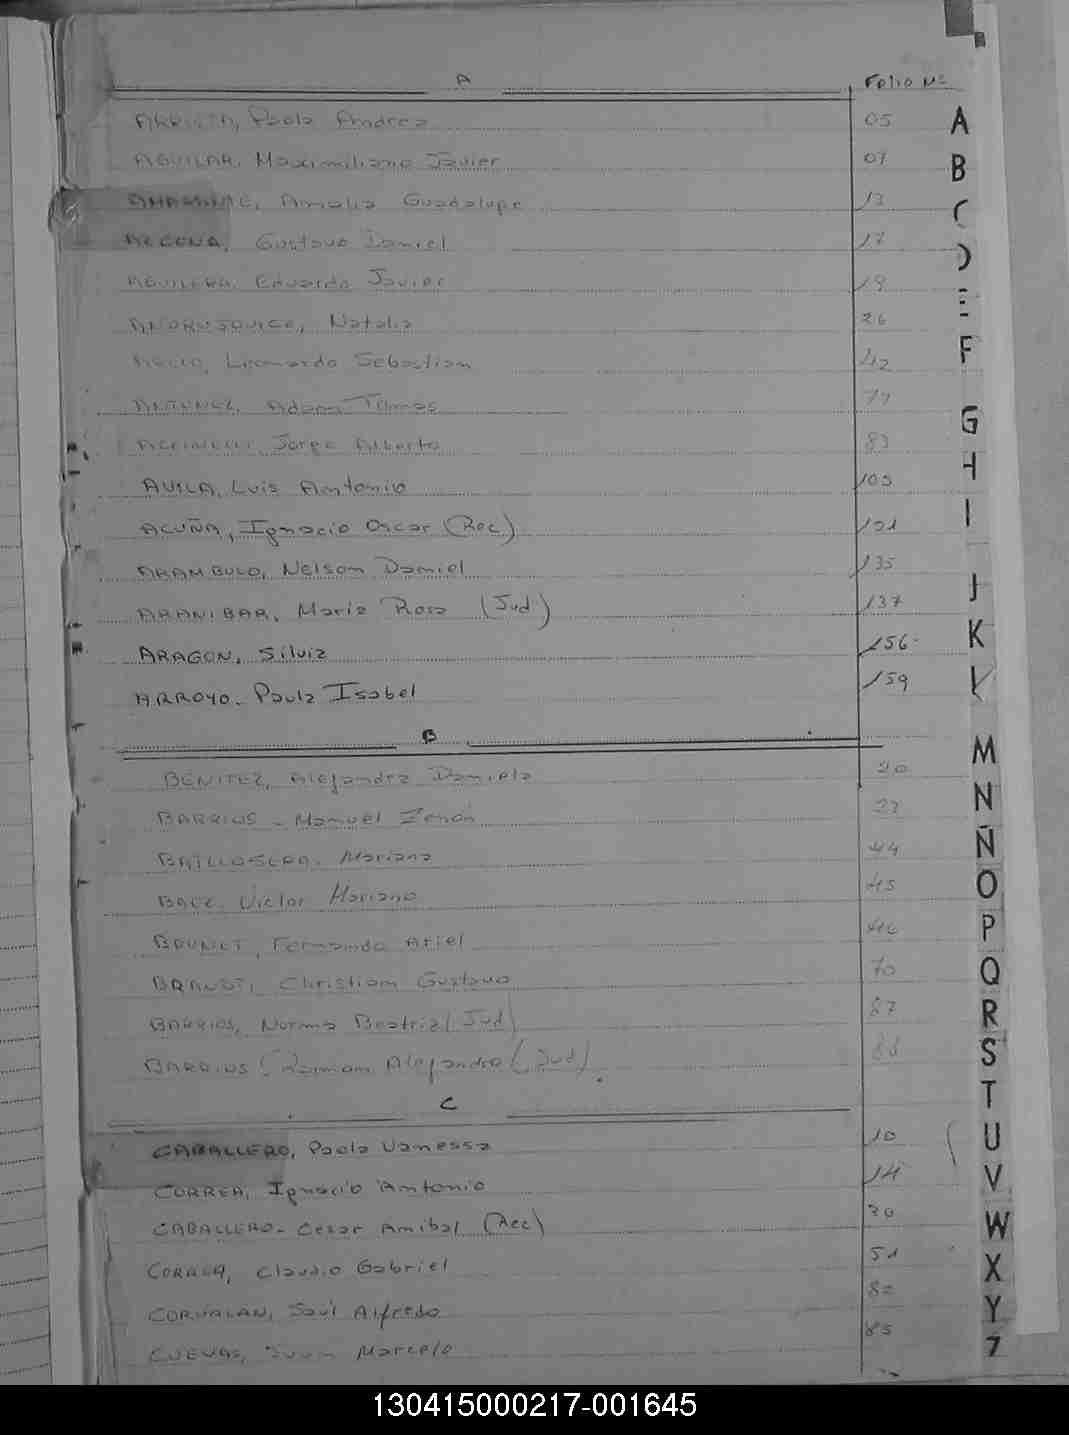 A
Folio Nº
ARRIETA, Paola Andrea 05
AGUILAR, Maximiliano Javier 07
Amalia Guadalupe 13
Gustavo Daniel 17
AGUILERA, Eduardo Javier 19
Natalia 26
Leonardo Sebastian 42
ANTUNEZ, Adam Tomas 77
Jorge Alberto 83
AVILA, Luis Antonio 105
ACUÑA, Ignacio Oscar (Rec) 121
ARAMBULO, Nelson Daniel 135
ARANIBAR, Maria Rosa (Jud) 137
ARAGON, Silvia 156
ARROYO. Paula Isabel 159
B
BENITEZ, Alejandra Daniela 20
BARRIOS - Manuel Zenón 22
Mariana 44
Victor Mariano 45
BRUNET, Fernando Ariel 46
BRANDT, Christiam Gustavo 70
BARRIOS, Norma Beatriz (Jud) 87
BARRIOS Alejandro (Jud) 88
C
CABALLERO, Paola Vanessa 10
CORREA, Ignacio Antonio 14
CABALLERO- Cesar Anibal (Rec) 30
CORREA, Claudio Gabriel 51
CORVALAN, Saúl Alfredo 82
CUEVAS, Juan Marcelo 85
A
B
C
D
E
F
G
H
I
J
K
L
M
N
Ñ
O
P
Q
R
S
T
U
V
W
X
Y
Z
130415000217-001645